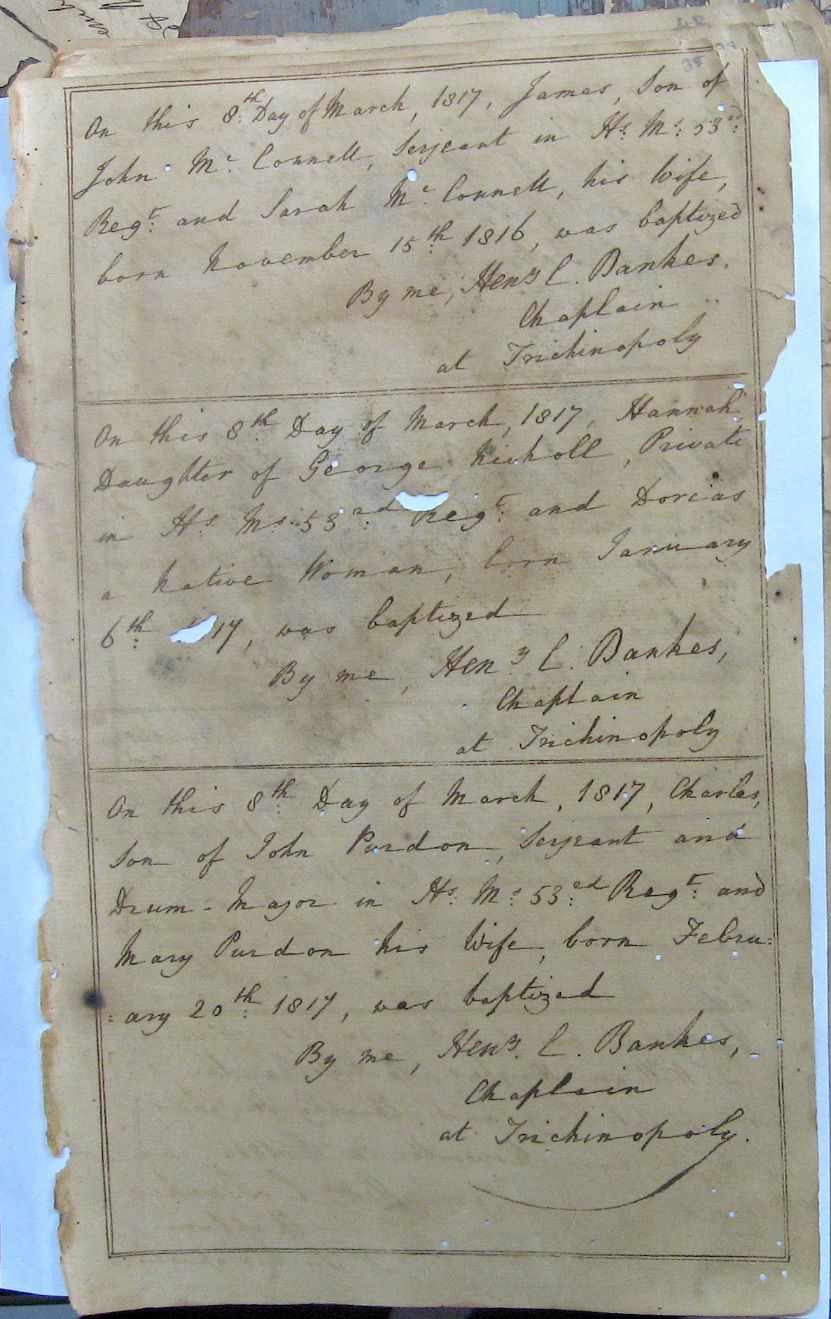 On this 8th Day of March, 1817, James, Son of
John Mc Connell, Serjeant in Hs. Ms. 53rd
Regt. and Sarah Mc Connell, his Wife,
born November 15th 1816, was baptized
By me, Heny C. Bankes.
Chaplain
at Trichinopoly
On this 8th Day of March, 1817, Hannah
Daughter of George Nicholl, Private
in Hs. Ms. 53rd Regt. and Dorcas
a Native Woman, born January
6th 17, was baptized
By me, Heny C. Bankes,
Chaplain
at Trichinopoly
On this 8th Day of March, 1817, Charles,
Son of John Purdon, Serjeant and
Drum-Major in Hs. Ms. 53rd Regt. and
Mary Purdon his Wife, born Febru:
:ary 20th 1817, was baptized
By me, Heny. C. Bankes,
Chaplain
at Trichinopoly.